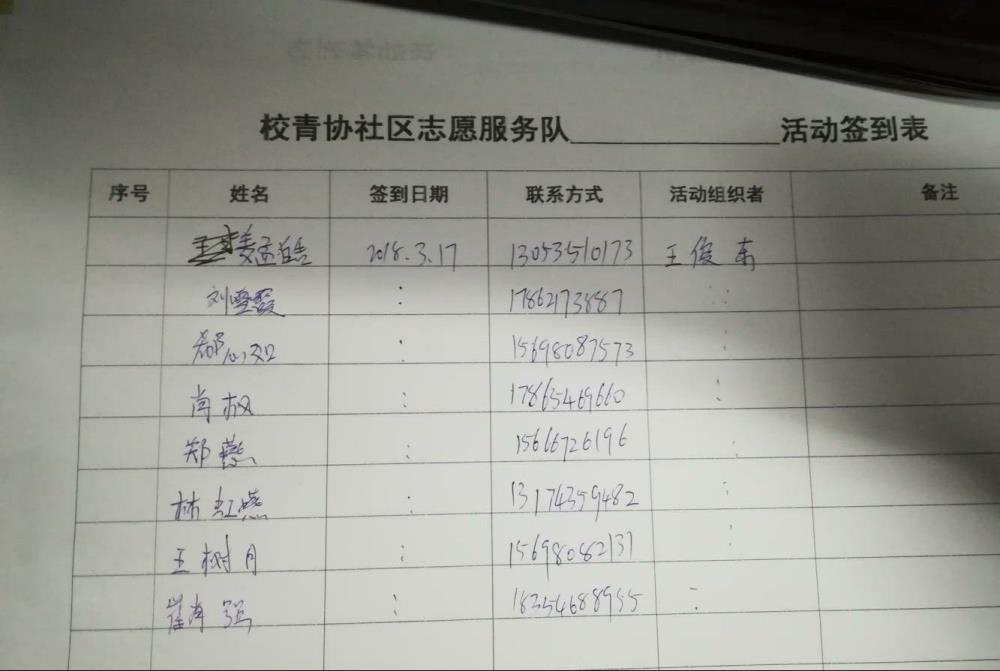 校青协社区志愿服务队____________活动签到表
序号 姓名 签到日期 联系方式 活动组织者 备注
姜孟皓 2018.3.17 13053510173 王俊东
刘雪霞 : 17862173887 :
郗 : 15698087573 :
尚枫 : 17865469660 :
郑燕 : 15666726196 :
林虹燕 : 13174359482 :
王树月 : 15698082131 :
崔 强 : 18354688955 :